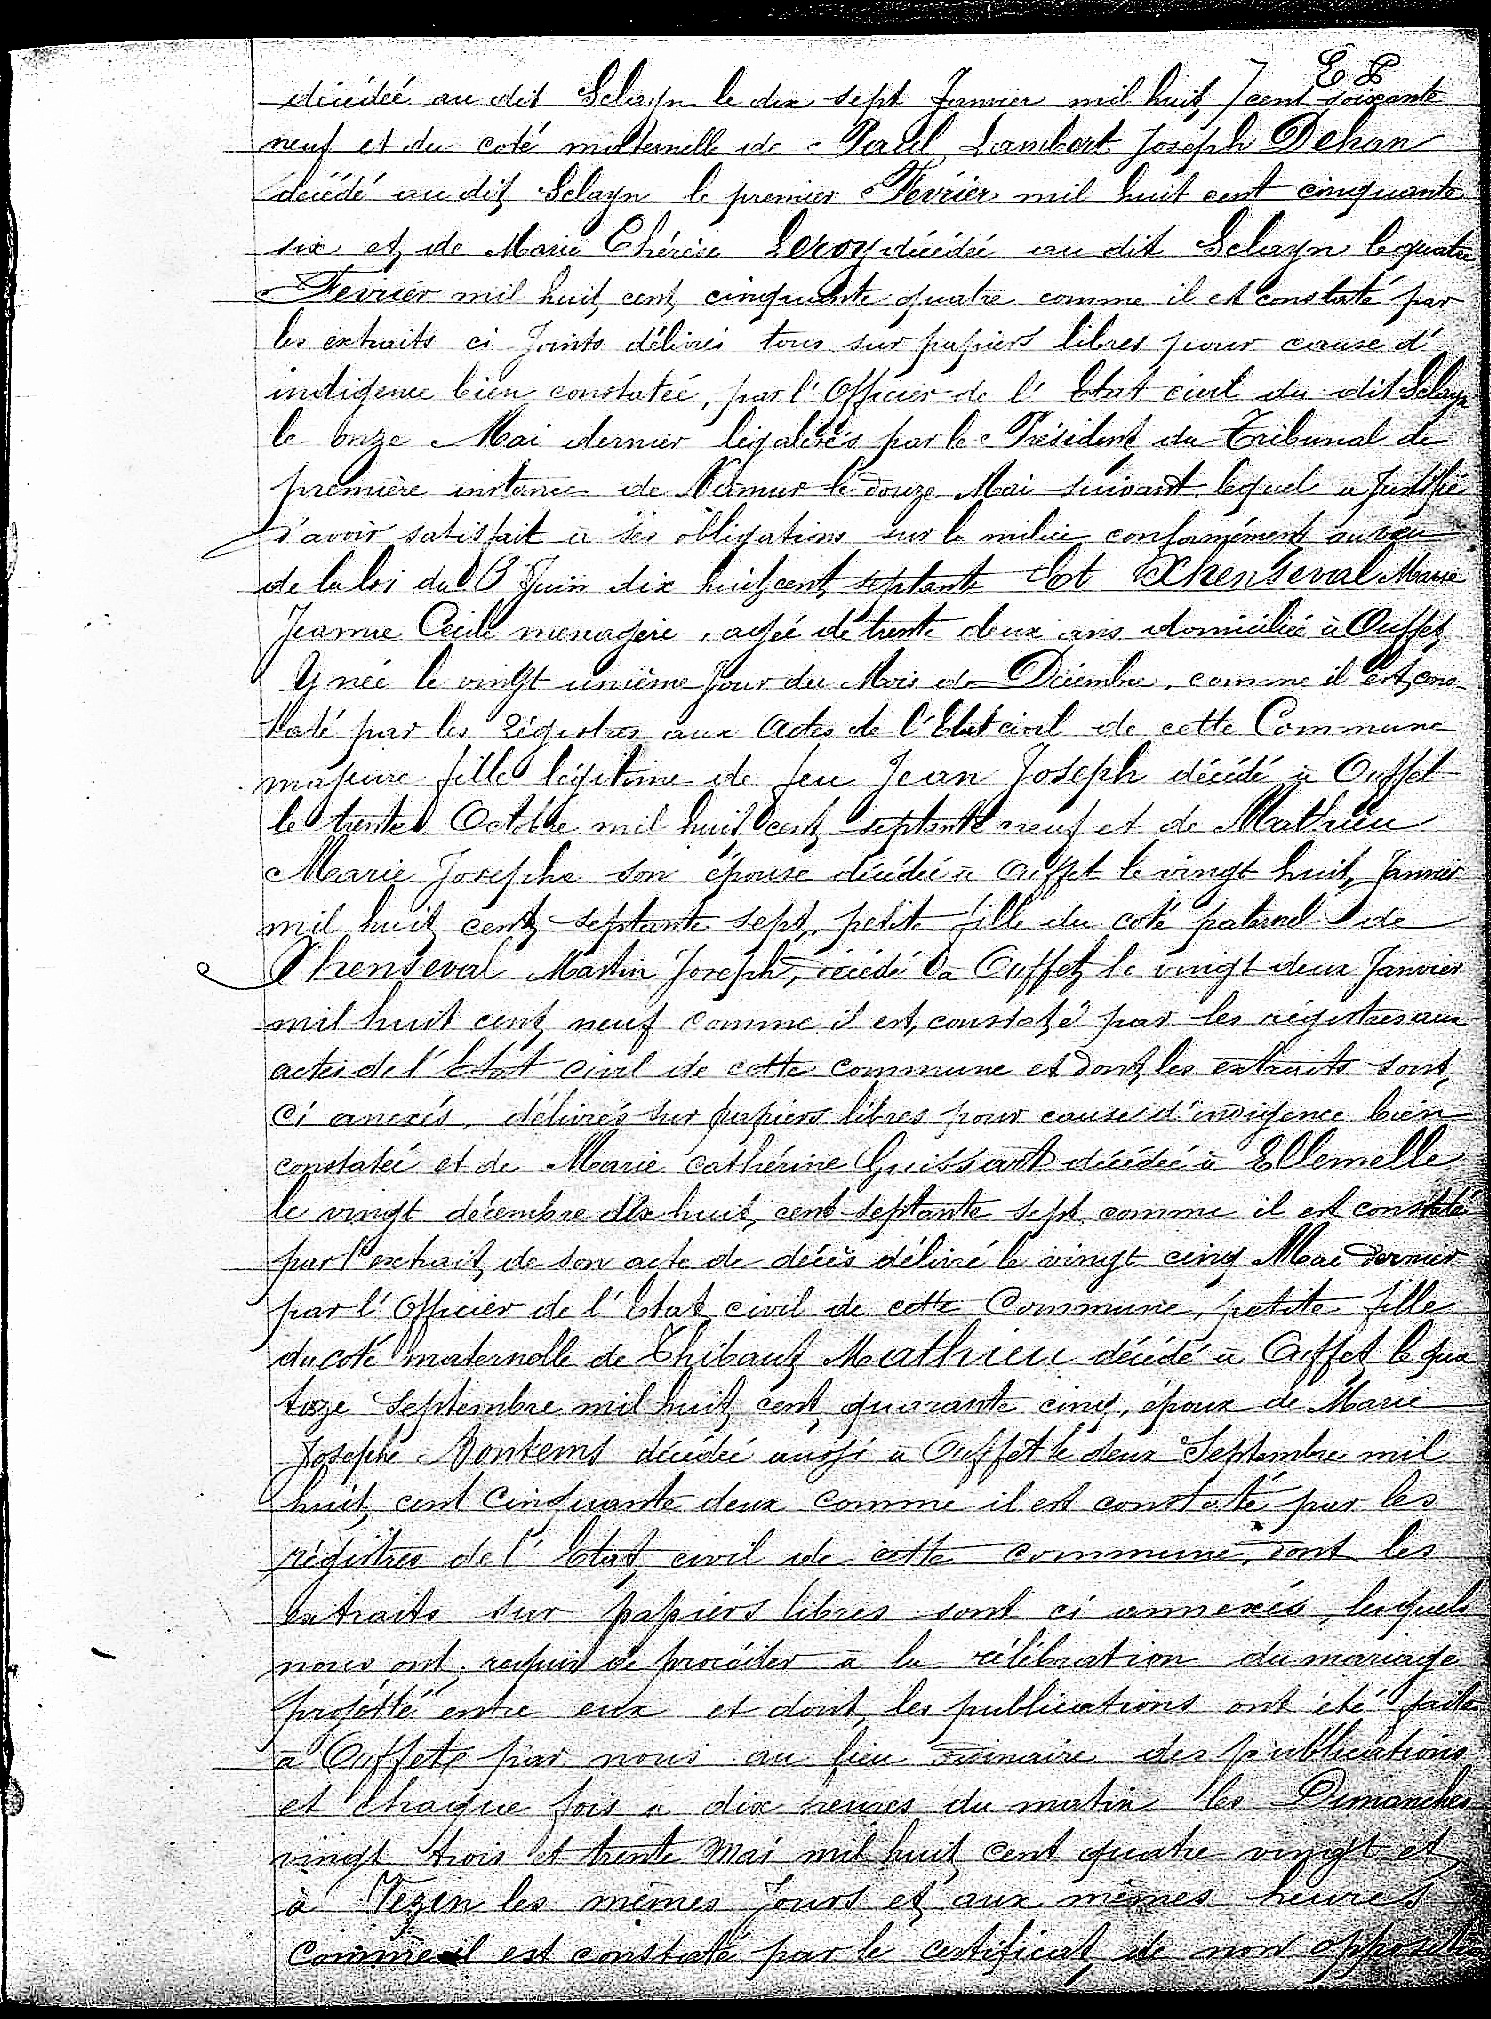 E P
décédée au dit Sclayn le dix sept Janvier mil huit / cent soixante
neuf et du coté maternelle de Paul Lambert Joseph Dehan
décédé au dit Sclayn le premier Février mil huit cent cinquante
six et de Marie Thérèse Leroy décédée au dit Sclayn le quatre
Fevrier mil huit cent cinquante quatre comme il est constaté par
les extraits ci Joints délivrés tous sur papiers libres pour cause d'
indigence bien constatée, par l'Officier de l'Etat civil du dit Sclayn
le onze Mai dernier légalisés par le Président du Tribunal de
première instance de Namur le douze Mai suivant lequel a Justifié
d'avoir satisfait à ses obligations sur la milice conformément au vœu
de la loi du 3 Juin dix huit cent septante Et Xhenseval Marie
Jeanne Cécile menagère, agée de trente deux ans domiciliée à Ouffet
Y née le vingt unième Jour du Mois de Décembre, comme il est cons-
taté par les régistres aux Actes de l'Etat civil de cette Commune
majeure fille légitime de feu Jean Joseph décédé à Ouffet
le trente Octobre mil huit cent septante neuf et de Mathieu
Marie Josephe son épouse décédée à Ouffet le vingt huit Janvier
mil huit cent septante sept, petite fille du coté paternel de
Xhenseval Martin Joseph, décédé à Ouffet le vingt deux Janvier
mil huit cent neuf comme il est constaté par les régistres aux
actes de l'Etat civil de cette commune et dont les extraits sont
ci anexés, délivrés sur papiers libres pour cause d'indigence bien
constatée et de Marie Cathérine Guissart décédée à Ellemelle
le vingt décembre dix huit cent septante sept comme il est constaté
par l'extrait de son acte de décès délivré le vingt cinq Mai dernier
par l'Officier de l'Etat civil de cette Commune, petite fille
du coté maternelle de Thibaut Mathieu décédé à Ouffet le qua
torze Septembre mil huit cent quarante cinq, époux de Marie
Josephe Bontems décédée aussi à Ouffet le deux Septembre mil
huit cent cinquante deux comme il est constaté par les
régistres de l'Etat civil de cette commune, dont les
extraits sur papiers libres sont ci annexés, lesquels
nous ont requis de procéder à la célébration du mariage
projetté entre eux et dont les publications ont été faites
à Ouffet par nous au lieu ordinaire des publications
et chaque fois à dix heures du matin les Dimanches
vingt trois et trente Mai mil huit cent quatre vingt et
à Vezin les mêmes Jours et aux mêmes heures
comme il est constaté par le certificat de non opposition